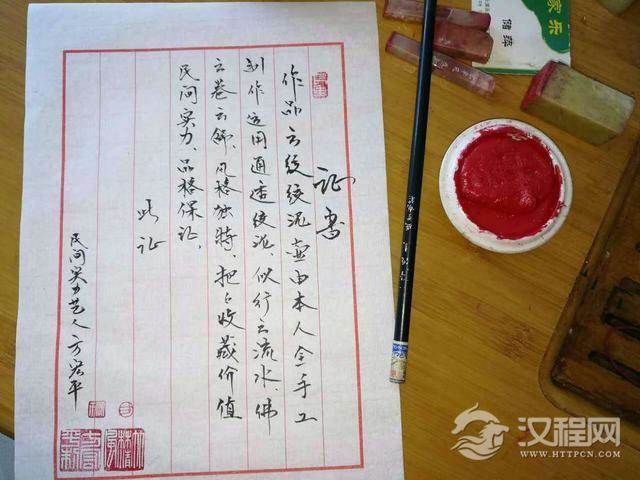 证书
作品云纹绞泥壶由本人全手工
制作运用通透绞泥、似行云流水、佛
云卷云舒、风格独特、把々收藏价值
民间实力、品格保证、
此证
民间实力艺人方宏平
家乐
汉程网
WWW.HTTPCN.COM